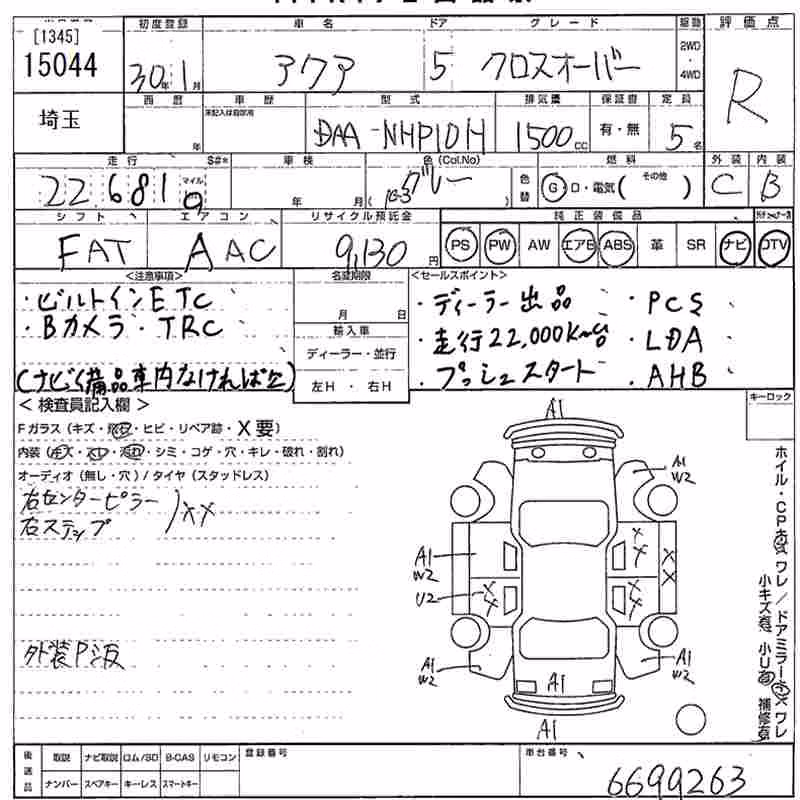 [1345]
15044
埼玉
初度登録
30年1月
車名
アクア
ドア
5
グレード
クロスオーバー
駆動
2WD
・
4WD
評価点
R
西暦
年
車歴
未記入は自家用
型式
DAA-NHP10H
排気量
1500cc
保証書
有・無
定員
5名
走行
22,681
マイル
S#*
車検
年 月
色(Col.No)
グレー
色替
燃料
G・D・電気( その他 )
外装
C
内装
B
シフト
FAT
エアコン
AAC
リサイクル預託金
9,130円
純正装備品
PS PW AW エアB ABS 革 SR ナビ DTV
<注意事項>
・ビルトインETC
・Bカメラ・TRC
(ナビ備品車内なければ欠)
名変期限
月 日
輸入車
ディーラー・並行
左H ・ 右H
<セールスポイント>
・ディーラー出品
・走行22,000K〜台
・プッシュスタート
・PCS
・LDA
・AHB
<検査員記入欄>
Fガラス(キズ・飛石・ヒビ・リペア跡・X要)
内装(キズ・スレ・汚れ・シミ・コゲ・穴・キレ・破れ・割れ)
オーディオ(無し・穴)/タイヤ(スタッドレス)
右センターピラー
右ステップ
XX
外装P済
キーロック
A1
A1
W2
A1
W2
U2
XX
XX
XX
XX
A1
W2
A1
W2
A1
A1
ホイル・CPキズ ワレ/ドアミラーキズ ワレ
小キズ有 小U有 補修有
後送品
取説 ナビ取説 ロム/SD B-CAS リモコン
ナンバー スペアキー キーレス スマートキー
登録番号
車台番号
6699263